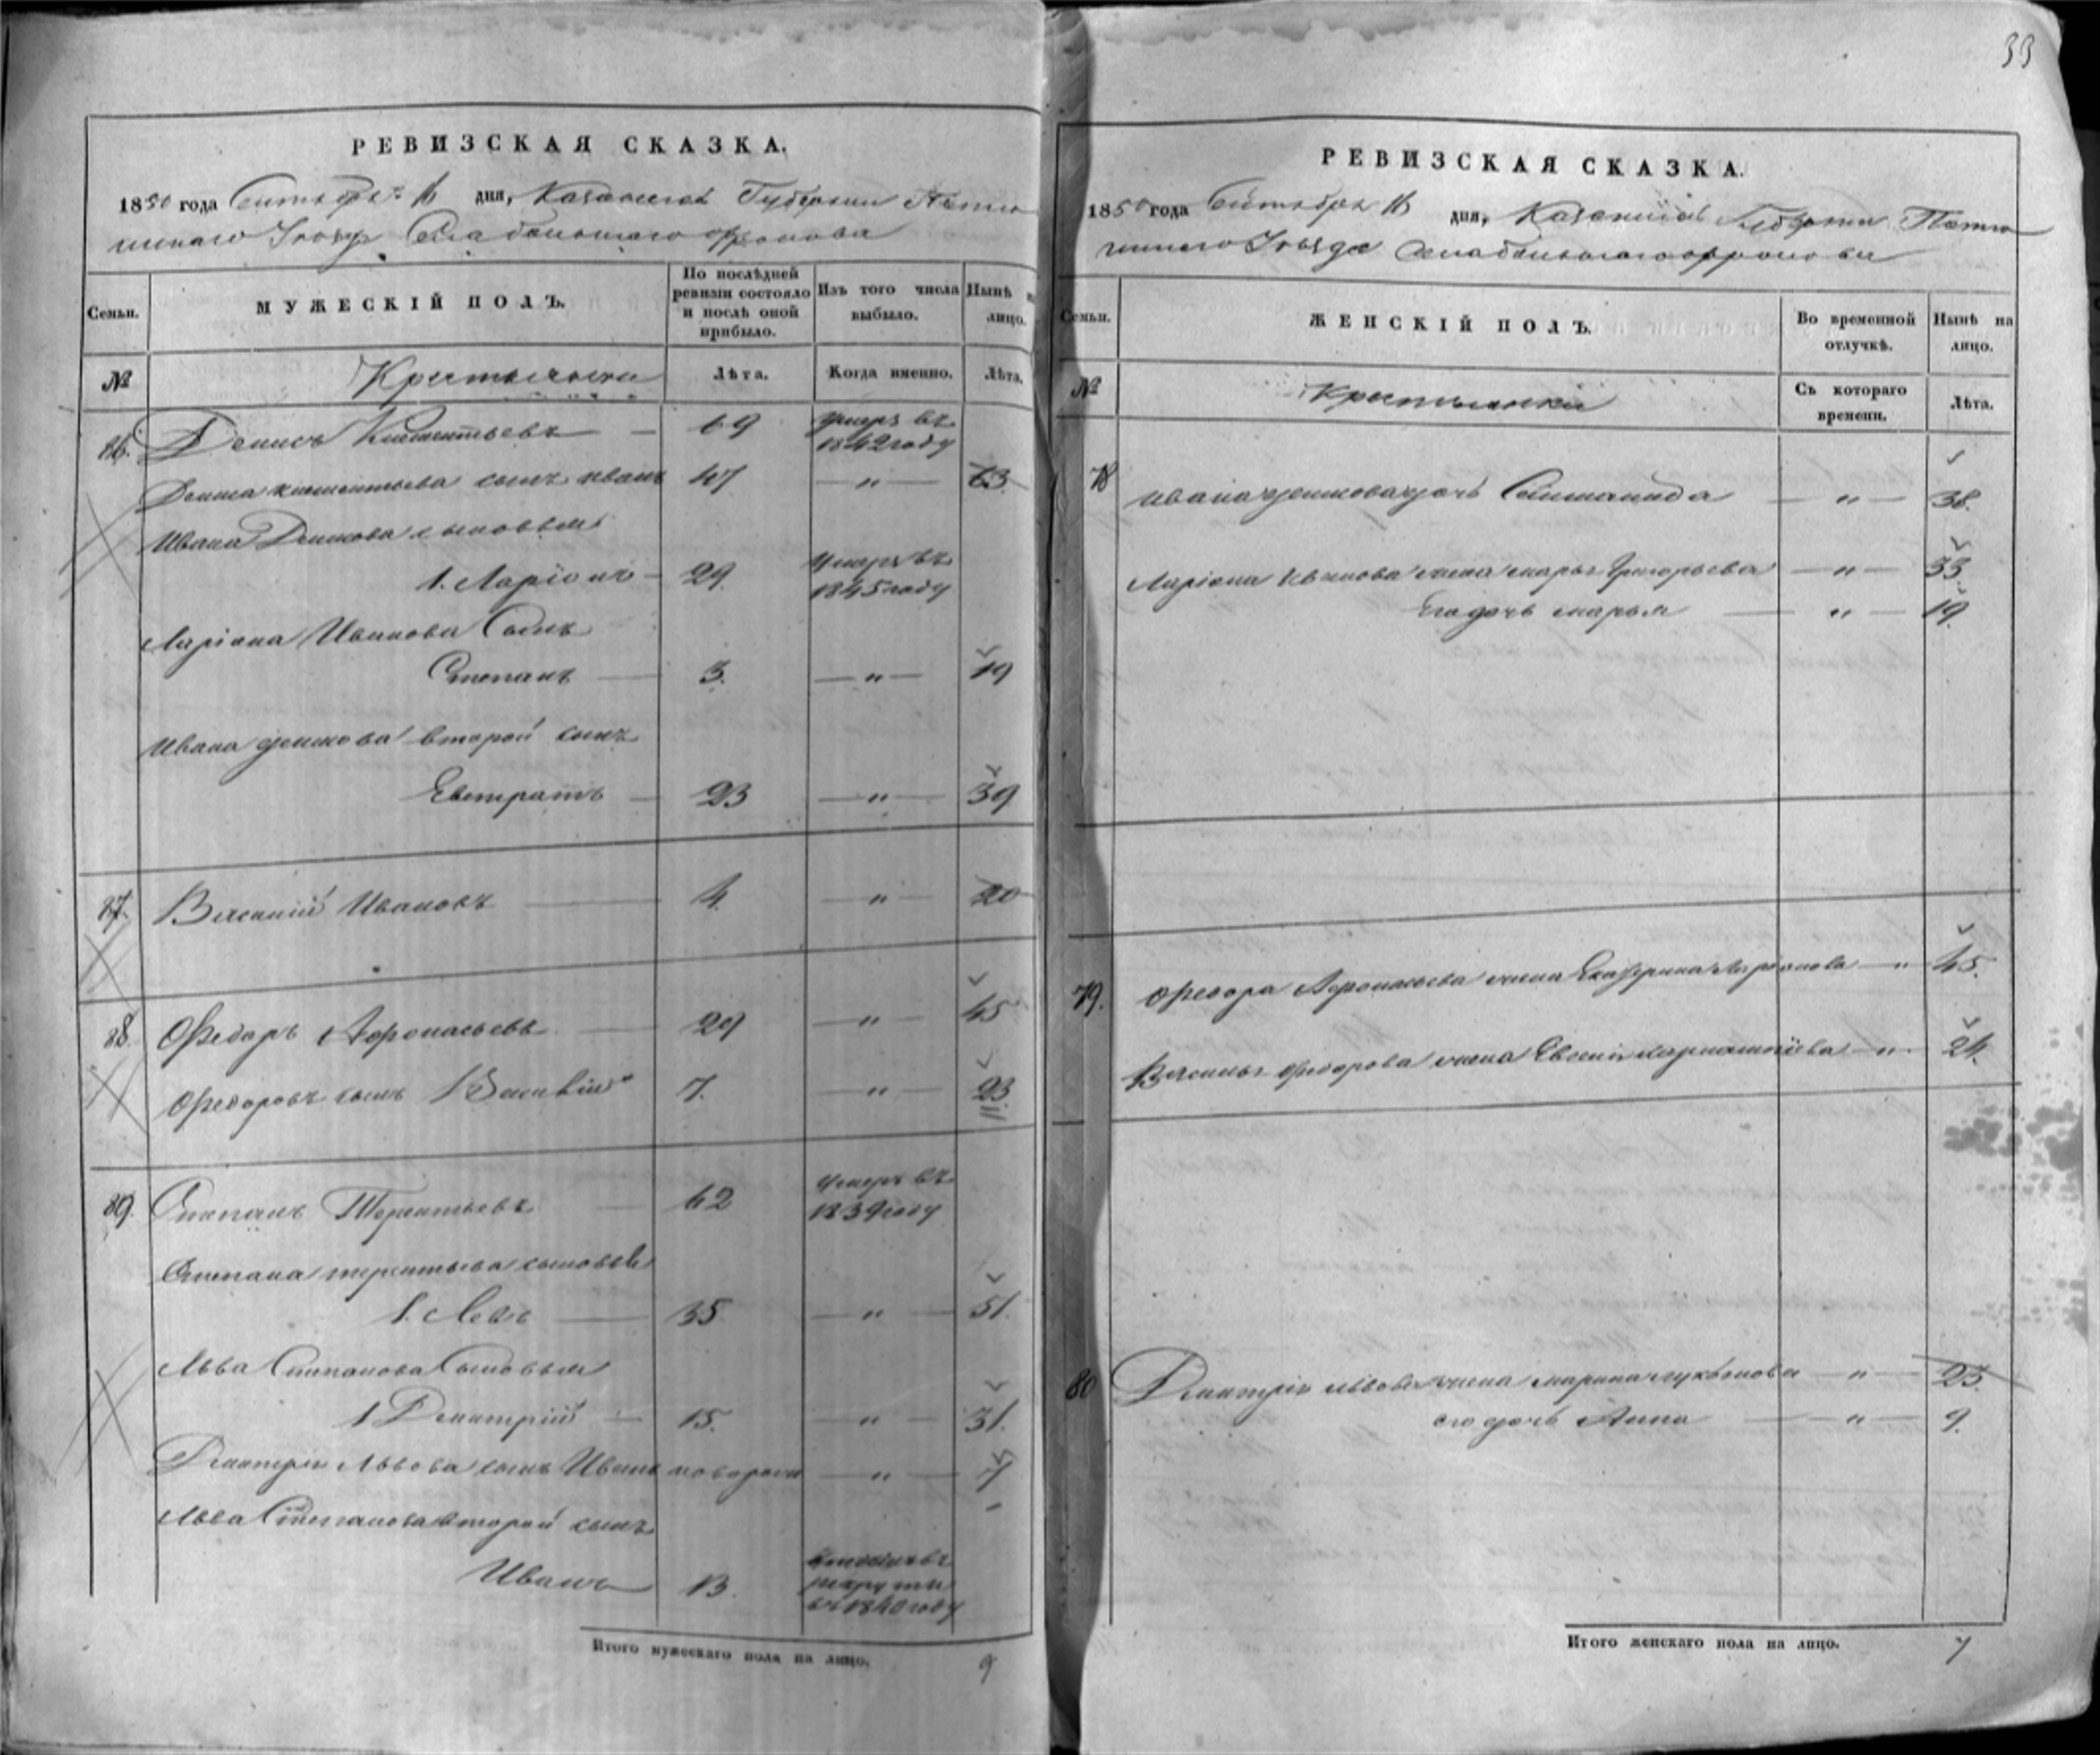 33
РЕВИЗСКАЯ СКАЗКА.
1850 года Сентября 16 дня, Казанской Губернии
Уезда Села
Семьи. МУЖЕСКІЙ ПОЛЪ. По послѣдней ревизіи состояло и послѣ оной прибыло. Изъ того числа выбыло. Нынѣ на лицо.
№ Крестьяне Лѣта. Когда именно. Лѣта.
86. Денисъ — 69 умеръ въ 1842 году
Дениса сынъ Иванъ 47 — „ — 63
Ивана Денисова сыновья
1. Ларіонъ — 29. Умеръ въ 1845 году
Ларіона Иванова Сынъ
Степанъ — 3. — „ — 19
Ивана Денисова второй сынъ
Евстратъ — 23 — „ — 39
87. Василий Ивановъ — 4. „ — 20
88. Федоръ Афонасьевъ — 29 — „ — 45
Федоровъ сынъ Василий 7. — „ — 23.
89. Степанъ Терентьевъ — 62 Умеръ въ 1839 году
Степана Терентьева сыновья
1. Левъ — 35 — „ — 51.
Льва Степанова Сыновья
1 Дмитрій — 15. „ — 31.
Дмитрія Львова сынъ Иванъ новорожд — „ — 7
Льва Степанова второй сынъ
Иванъ 13. рекруты въ 1840 году
Итого мужескаго пола на лицо. 9
РЕВИЗСКАЯ СКАЗКА.
1850 года Сентября 16 дня, Казанской Губерніи
Уезда Села
Семьи. ЖЕНСКІЙ ПОЛЪ. Во временной отлучкѣ. Нынѣ на лицо.
№ Крестьянки Съ котораго времени. Лѣта.
78 Ивана Денисова дочь — „ — 38.
Ларіона Иванова жена Марья Григорьева — „ — 33.
Его дочь Марья — „ — 19.
79. Федора Афонасьева жена Екатерина Ларіонова — „ 45.
Василья Федорова жена — „ — 24.
80 Дмитрія Львова жена Марина — „ — 25.
его дочь Анна — „ — 9.
Итого женскаго пола на лицо. 7